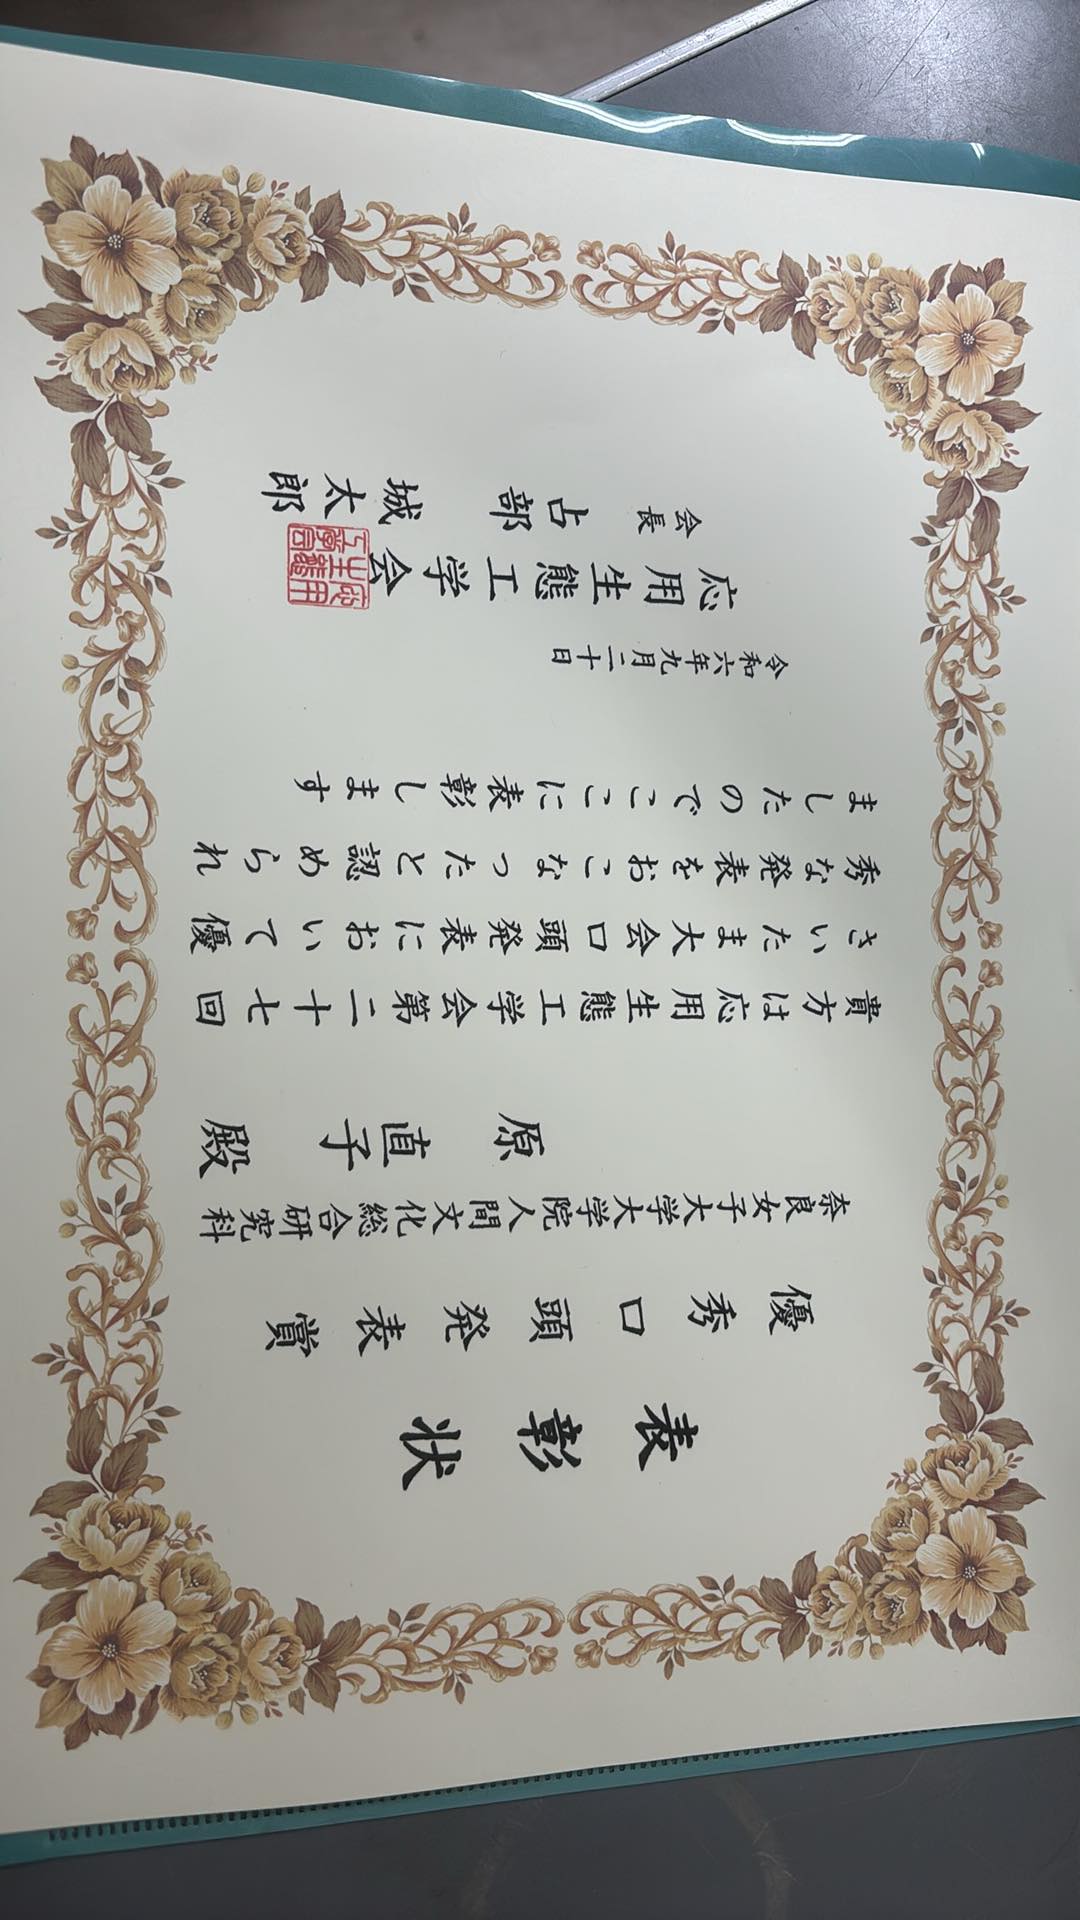 表彰状
優秀口頭発表賞
奈良女子大学大学院人間文化総合研究科
原 直子 殿
貴方は応用生態工学会第二十七回
さいたま大会口頭発表において優
秀な発表をおこなったと認められ
ましたのでここに表彰します
令和六年九月二十日
応用生態工学会
会長 占部 城太郎